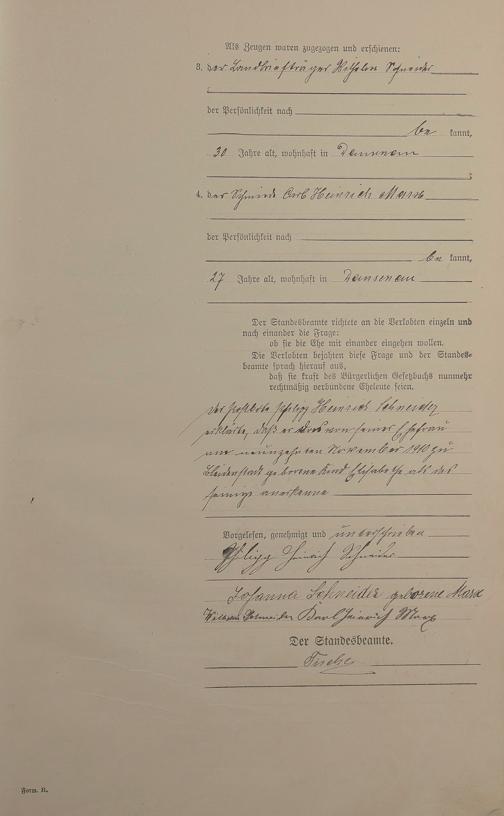 Als Zeugen waren zugezogen und erschienen:
3. der Landbriefträger Wilhelm Schneider
der Persönlichkeit nach
be kannt,
30 Jahre alt, wohnhaft in
4. der Schmied Carl Heinrich Marx
der Persönlichkeit nach
be kannt,
27 Jahre alt, wohnhaft in
Der Standesbeamte richtete an die Verlobten einzeln und
nach einander die Frage:
ob sie die Ehe mit einander eingehen wollen.
Die Verlobten bejahten diese Frage und der Standes-
beamte sprach hierauf aus,
daß sie kraft des Bürgerlichen Gesetzbuchs nunmehr
rechtmäßig verbundene Eheleute seien.
Der Postbote Philipp Heinrich Schneider
erklärte, daß er das von seiner Ehefrau
am neunzehnten November 1910 zu
Bleidenstadt geborene Kind Elisabethe als das
seinige anerkenne
Vorgelesen, genehmigt und unterschrieben
Philipp Heinrich Schneider
Johanna Schneider geborene Marx
Wilhelm Schneider Karl Heinrich Marx
Der Standesbeamte.
Form. B.